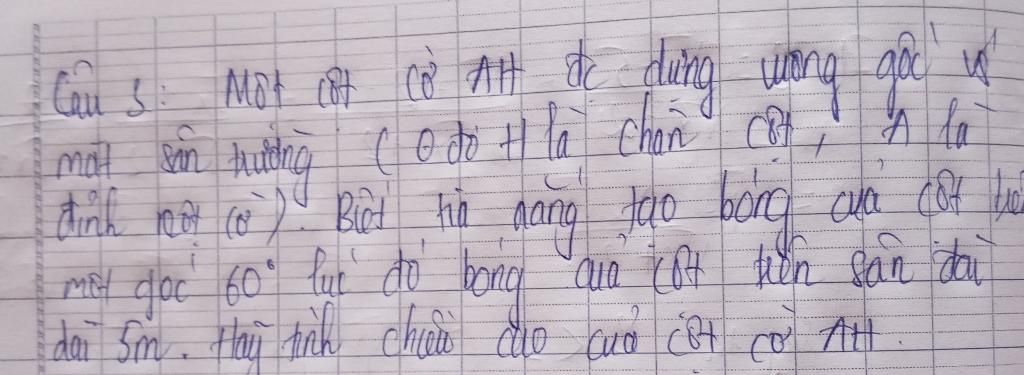 Câu 5: Một cột cờ AH đc dựng vuông góc vs
mặt sân trường (ở đó H là chân cột, A là
đỉnh cột cờ). Biết tia nắng tạo bóng của cột
một góc 60° lúc đó bóng của cột trên sân dài
dài 5m. Hãy tính chiều cao của cột cờ AH.